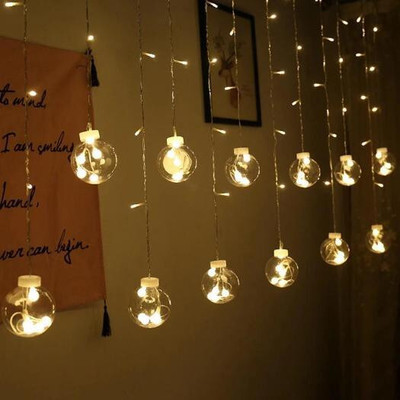 to mind
I am smiling
hand,
ver can begin.